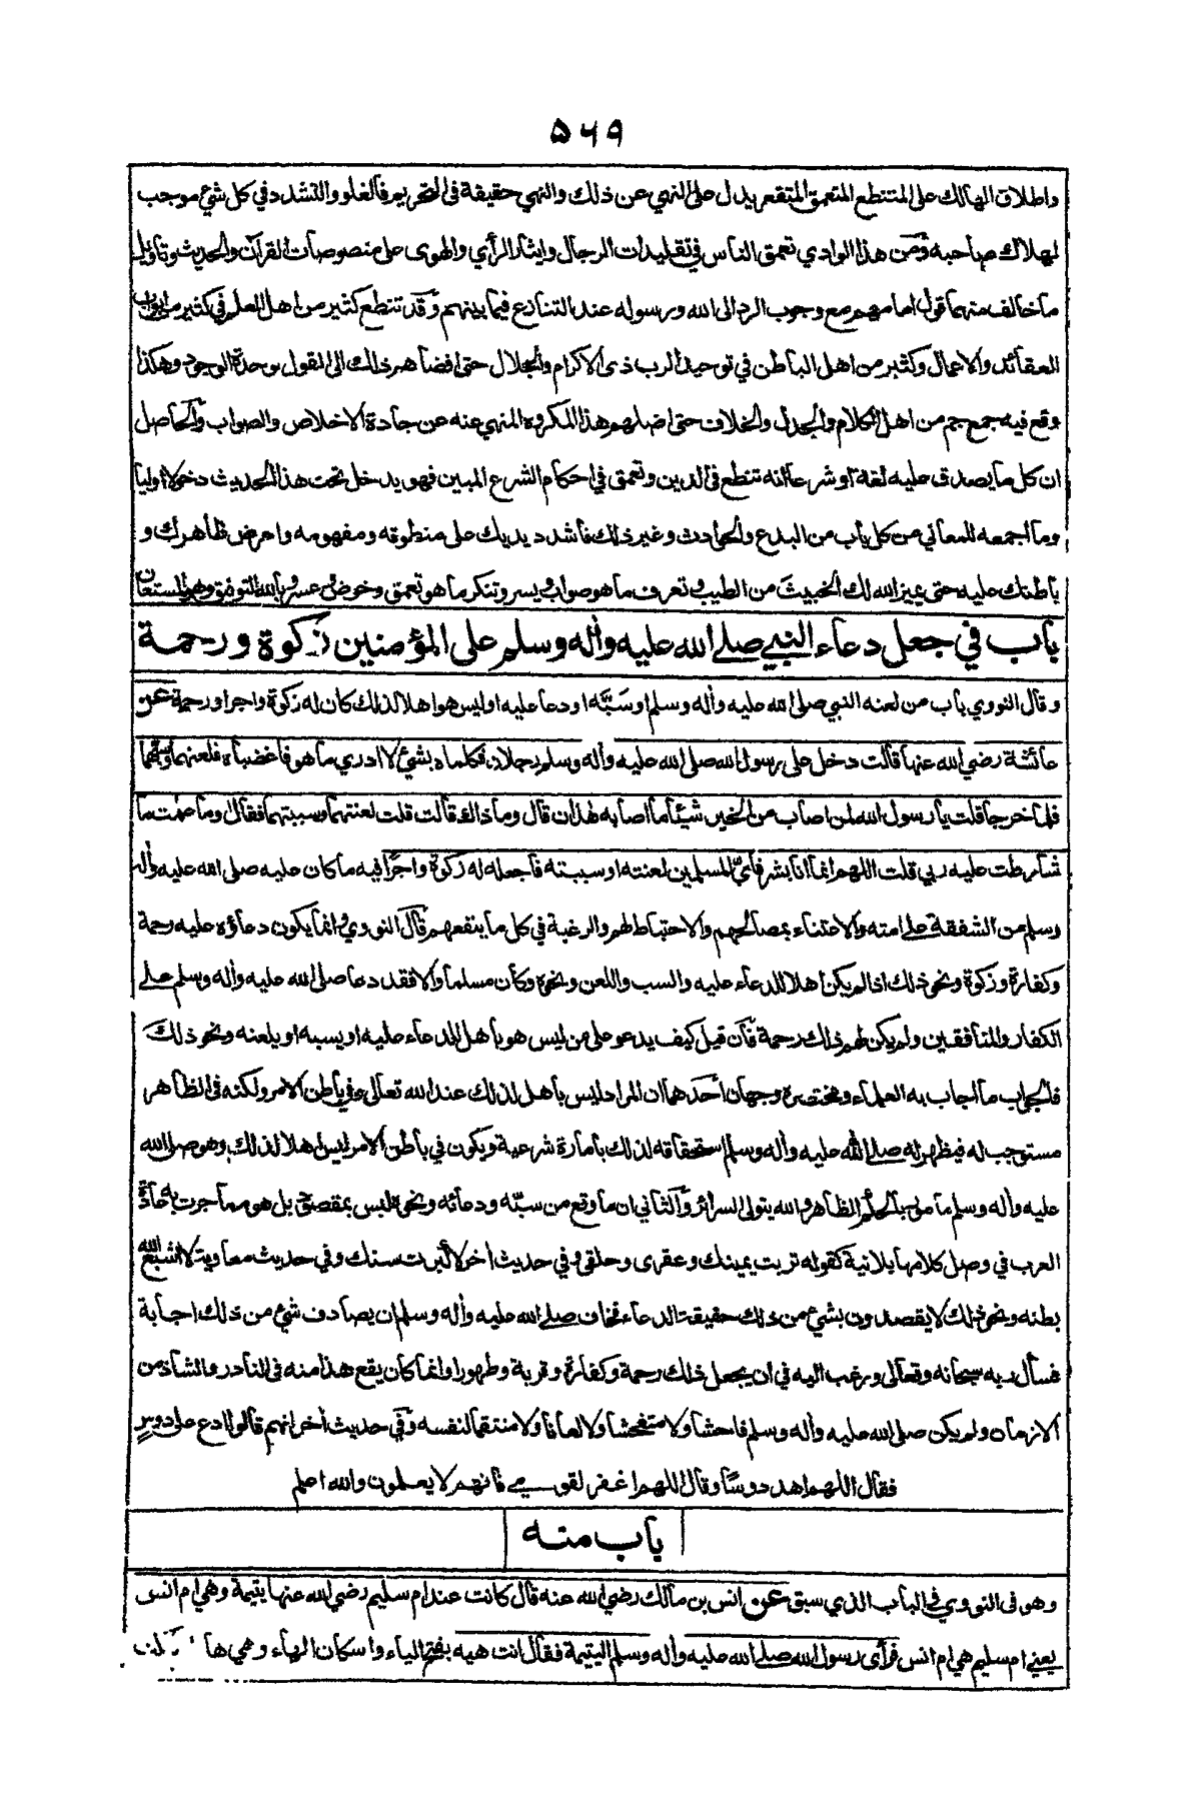 ۵۶۹
واطلاق الهالك على المتنطع المتعمق المتقعر يدل على النهي عن ذلك والنهي حقيقة فى التحريم فالغلو والتشدد في كل شئ موجب
لهلاك صاحبه ومن هذا الوادي تعمق الناس في تقليدات الرجال وايثار الرأي والهوى على منصوصات القرآن والحديث وتاويل
ما خالف منهما قول امامهم مع وجوب الرد الى الله ورسوله عند التنازع فيما بينهم وقد تنطع كثير من اهل العلم في كثير من ابواب
العقائد والاعمال وكثير من اهل الباطن في توحيد الرب ذى الاكرام والجلال حتى افضاهم ذلك الى القول بوحدة الوجود وهكذا
وقع فيه جمع جم من اهل الكلام والجدل والخلاف حتى اضلهم هذا المكروه المنهي عنه عن جادة الاخلاص والصواب والحاصل
ان كل ما يصدق عليه لغة او شرعا انه تنطع فى الدين وتعمق في احكام الشرع المبين فهو يدخل تحت هذا الحديث دخولا اوليا
وما اجمعه للمعاني من كل باب من البدع والحوادث وغير ذلك فاشدد يديك على منطوقه ومفهومه واعرض ظاهرك و
باطنك عليه حتى يميز الله لك الخبيث من الطيب وتعرف ما هو صواب ويسر وتنكر ما هو تعمق وخوض وعسر وبالله التوفيق وهو المستعان
باب في جعل دعاء النبي صلى الله عليه وأله وسلم على المؤمنين زكوة ورحمة
وقال النووي باب من لعنه النبي صلى الله عليه وأله وسلم او سَبَّه او دعا عليه او ليس هو اهلا لذلك كان له زكوة واجرا ورحمة عن
عائشة رضي الله عنها قالت دخل على رسول الله صلى الله عليه وأله وسلم رجلان فكلماه بشئ لا ادري ما هو فاغضباه فلعنهما وسبهما
فلما خرجا قلت يا رسول الله لمن اصاب من الخير شيئا ما اصابه هذان قال وما ذاك قالت قلت لعنتهما وسببتهما فقال او ما علمت ما
شارطت عليه ربي قلت اللهم انما انا بشر فأيّ المسلمين لعنته او سببته فاجعله له زكوة واجرًا فيه ما كان عليه صلى الله عليه وأله
وسلم من الشفقة على امته والاعتناء بمصالحهم والاحتياط لهم والرغبة في كل ما ينفعهم قال النووي وانما يكون دعاؤه عليه رحمة
وكفارة وزكوة ونحو ذلك اذا لم يكن اهلا للدعاء عليه والسب واللعن ونحوه وكان مسلما والا فقد دعا صلى الله عليه وأله وسلم على
الكفار والمنافقين ولم يكن لهم ذلك رحمة فان قيل كيف يدعو على من ليس هو باهل للدعاء عليه او يسبه او يلعنه ونحو ذلك
فالجواب ما اجاب به العلماء ومختصره وجهان أحدهما ان المراد ليس باهل لذلك عند الله تعالى وفي باطن الامر ولكنه فى الظاهر
مستوجب له فيظهر له صلى الله عليه وأله وسلم استحقاقه لذلك بأمارة شرعية ويكون في باطن الامر ليس اهلا لذلك وهو صلى الله
عليه وأله وسلم مأمور بالحكم الظاهر والله يتولى السرائر والثاني ان ما وقع من سبّه ودعائه ونحوه ليس بمقصود بل هو مما جرت به عادة
العرب في وصل كلامها بلا نية كقوله تربت يمينك وعقرى وحلقى وفي حديث أخر لا كبرت سنك وفي حديث معاوية لا اشبع الله
بطنه ونحو ذلك لا يقصدون بشئ من ذلك حقيقة الدعاء فخاف صلى الله عليه وأله وسلم ان يصادف شئ من ذلك اجابة
فسأل ربه سبحانه وتعالى ورغب اليه في ان يجعل ذلك رحمة وكفارة وقربة وطهورا واجرا وانما كان يقع هذا منه فى النادر والشاذ من
الازمان ولم يكن صلى الله عليه وأله وسلم فاحشا ولا متفحشا ولا لعانا ولا منتقما لنفسه وفي حديث أخر انهم قالوا ادع على دوسٍ
فقال اللهم اهد دوسًا وقال اللهم اغفر لقومي فانهم لا يعلمون والله اعلم
باب منه
وهو فى النووي في الباب الذي سبق عن انس بن مالك رضي الله عنه قال كانت عند ام سليم رضي الله عنها يتيمة وهي ام انس
يعني ام سليم هي ام انس فرأى رسول الله صلى الله عليه وأله وسلم اليتيمة فقال انت هيه بفتح الياء واسكان الهاء وهي ها